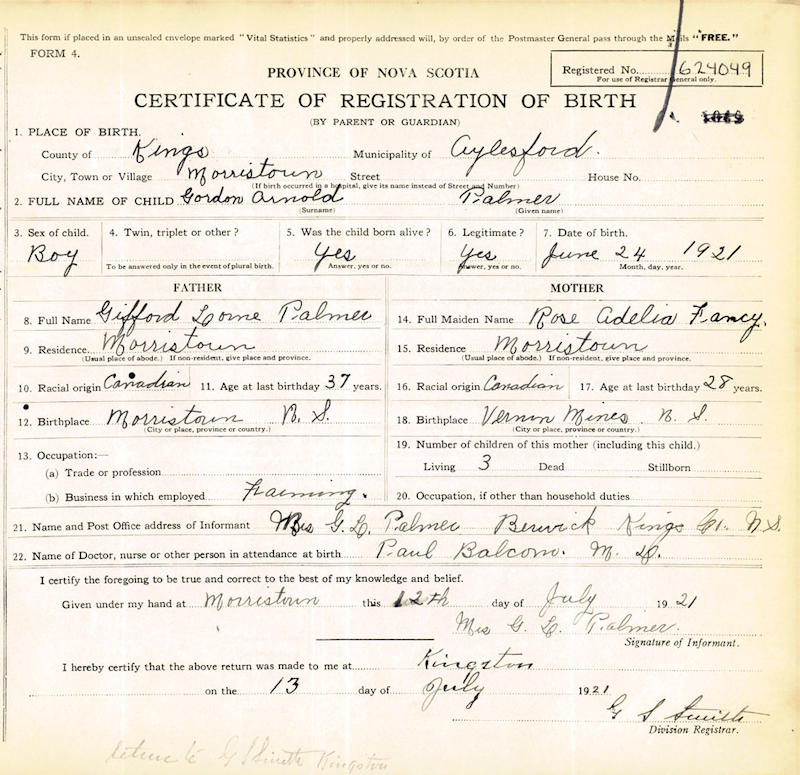 This form if placed in an unsealed envelope marked "Vital Statistics" and properly addressed will, by order of the Postmaster General pass through the Mails "FREE."
FORM 4.
PROVINCE OF NOVA SCOTIA
Registered No. 624049
For use of Registrar General only.
CERTIFICATE OF REGISTRATION OF BIRTH
(BY PARENT OR GUARDIAN)
1. PLACE OF BIRTH.
County of Kings Municipality of Aylesford.
City, Town or Village Morristown Street House No.
(If birth occurred in a hospital, give its name instead of Street and Number)
2. FULL NAME OF CHILD Gordon Arnold Palmer
(Surname) (Given name)
3. Sex of child. 4. Twin, triplet or other? 5. Was the child born alive? 6. Legitimate? 7. Date of birth.
Boy Yes Yes June 24 1921
To be answered only in the event of plural birth. Answer, yes or no. Answer, yes or no. Month, day, year.
FATHER MOTHER
8. Full Name Gifford Lorne Palmer 14. Full Maiden Name Rose Adelia Fancy.
9. Residence Morristown 15. Residence Morristown
(Usual place of abode.) If non-resident, give place and province. (Usual place of abode.) If non-resident, give place and province.
10. Racial origin Canadian 11. Age at last birthday 37 years. 16. Racial origin Canadian 17. Age at last birthday 28 years.
12. Birthplace Morristown N. S. 18. Birthplace Vernon Mines N. S.
(City or place, province or country.) (City or place, province or country.)
13. Occupation:— 19. Number of children of this mother (including this child.)
(a) Trade or profession Living 3 Dead Stillborn
(b) Business in which employed Farming. 20. Occupation, if other than household duties
21. Name and Post Office address of Informant Mrs G. L. Palmer Berwick Kings Co. N.S.
22. Name of Doctor, nurse or other person in attendance at birth Paul Balcom. M. D.
I certify the foregoing to be true and correct to the best of my knowledge and belief.
Given under my hand at Morristown this 12th day of July 1921
Mrs G. L. Palmer.
Signature of Informant.
I hereby certify that the above return was made to me at Kingston
on the 13 day of July 1921
G S Smith
Division Registrar.
return to G S Smith Kingston